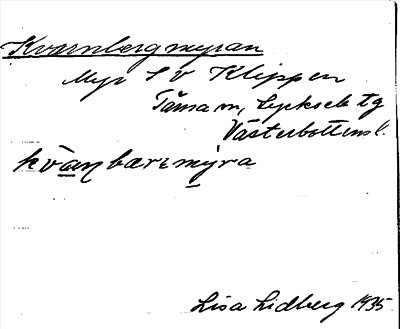 Kvarnbergmyran
Myr S v Klippen
Tärna sn, Lycksele tg
Västerbottens l.
kvàaŋbærɛmýra
Lisa Lidberg 1935